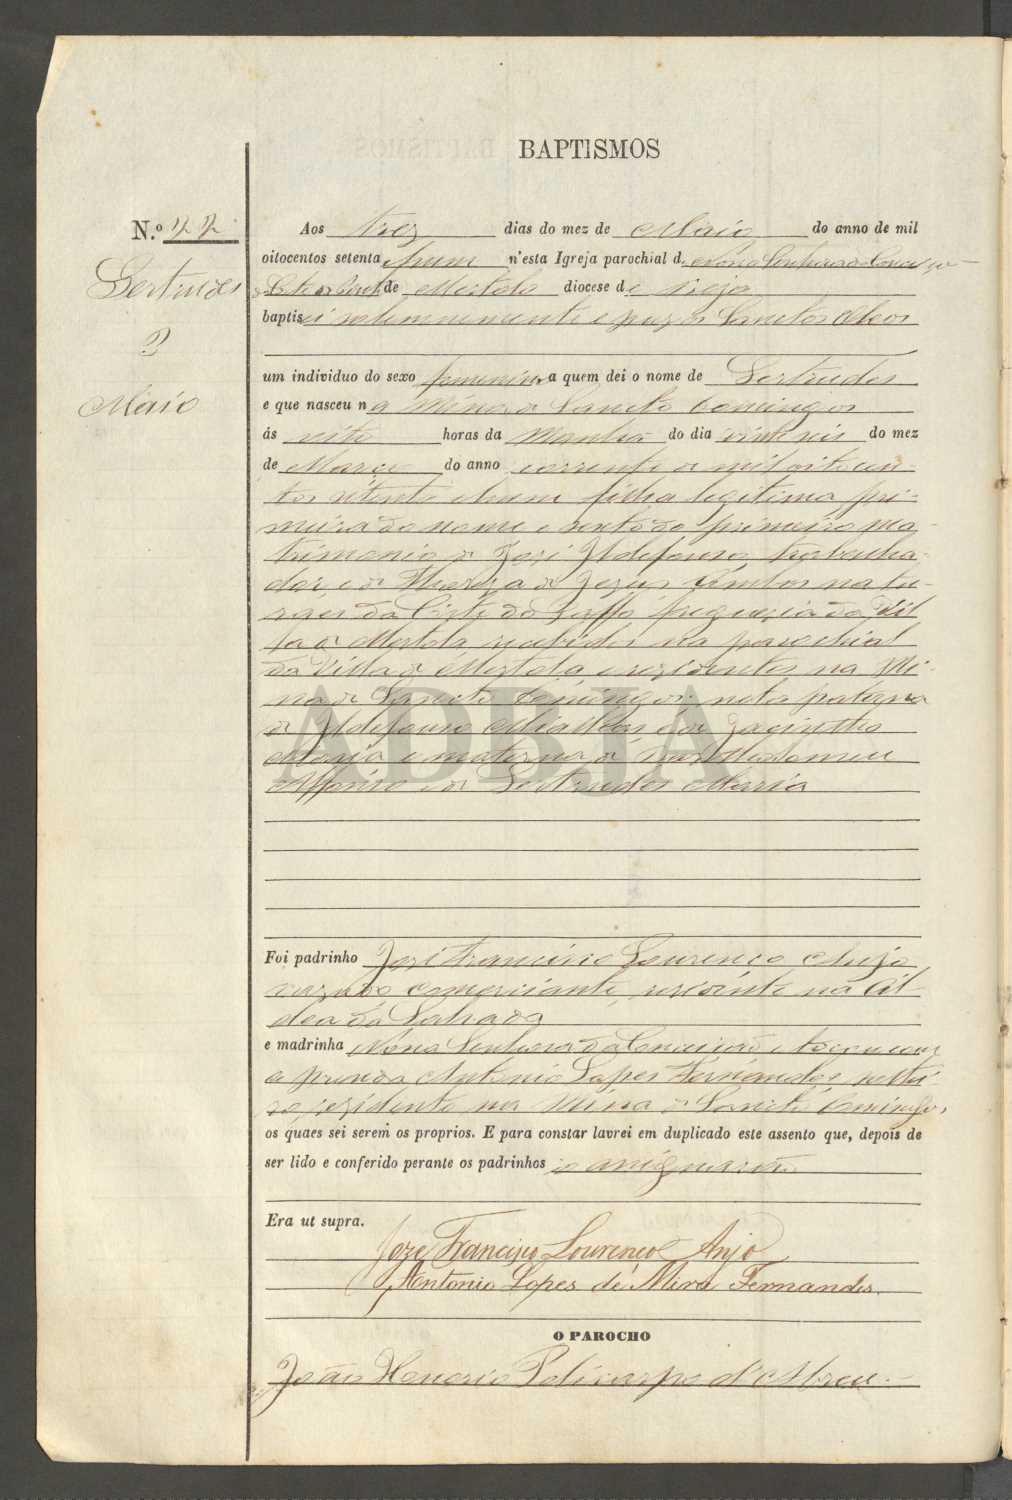 BAPTISMOS
N.º
Gertrudes
Maio
Aos tres dias do mez de Maio do anno de mil
oitocentos setenta e hum n'esta Igreja parochial de Nossa Senhora da Conceição
de Mertola diocese de Beja
baptisei solemnemente e puz os Sanctos Oleos
um individuo do sexo femenino a quem dei o nome de Gertrudes
e que nasceu na Mina de Sancto Domingos
ás oito horas da Manhã do dia vinte seis do mez
de Março do anno corrente de mil oitocen-
tos setenta e hum filha legitima pri-
meira do nome e sexto do primeiro ma-
trimonio de José Ildefonso, trabalha-
dor, e de Thereza de Jezus ambos natu-
raes da freguezia da Vil
la de Mertola recebidos na parochial
da Villa de Mertola e rezidentes na Mi-
na de Sancto Domingos, neta paterna
de Ildefonso Mathias e de Jacinctha
Maria e materna de Bartholomeu
Affonso e de Gertrudes Maria
Foi padrinho José Francisco Lourenço Anjo
cazado comerciante, rezidente na Al
dea da
e madrinha Nossa Senhora da Conceição e tocou com
a prenda Antonio Lopes Fernandes, soltei-
ro, rezidente na Mina de Sancto Domingos,
os quaes sei serem os proprios. E para constar lavrei em duplicado este assento que, depois de
ser lido e conferido perante os padrinhos o assignarão
Era ut supra.
Joze Francisco Lourenço Anjo
Antonio Lopes de Mira Fernandes.
O PAROCHO
João Honorio Policarpo d'Abreu.
ADBJA